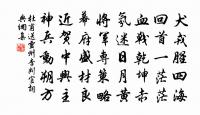 犬戎腥四海
回首一茫茫
血戰乾坤赤
氛迷日月黃
將軍專策略
幕府盛材良
近賀中興主
神兵動朔方
杜甫送靈州李判官詞
典詞集